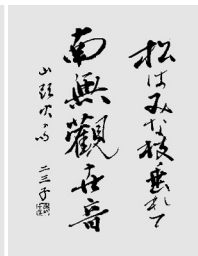 松はみな枝垂れて
南無觀世音
山頭火の句 二三子